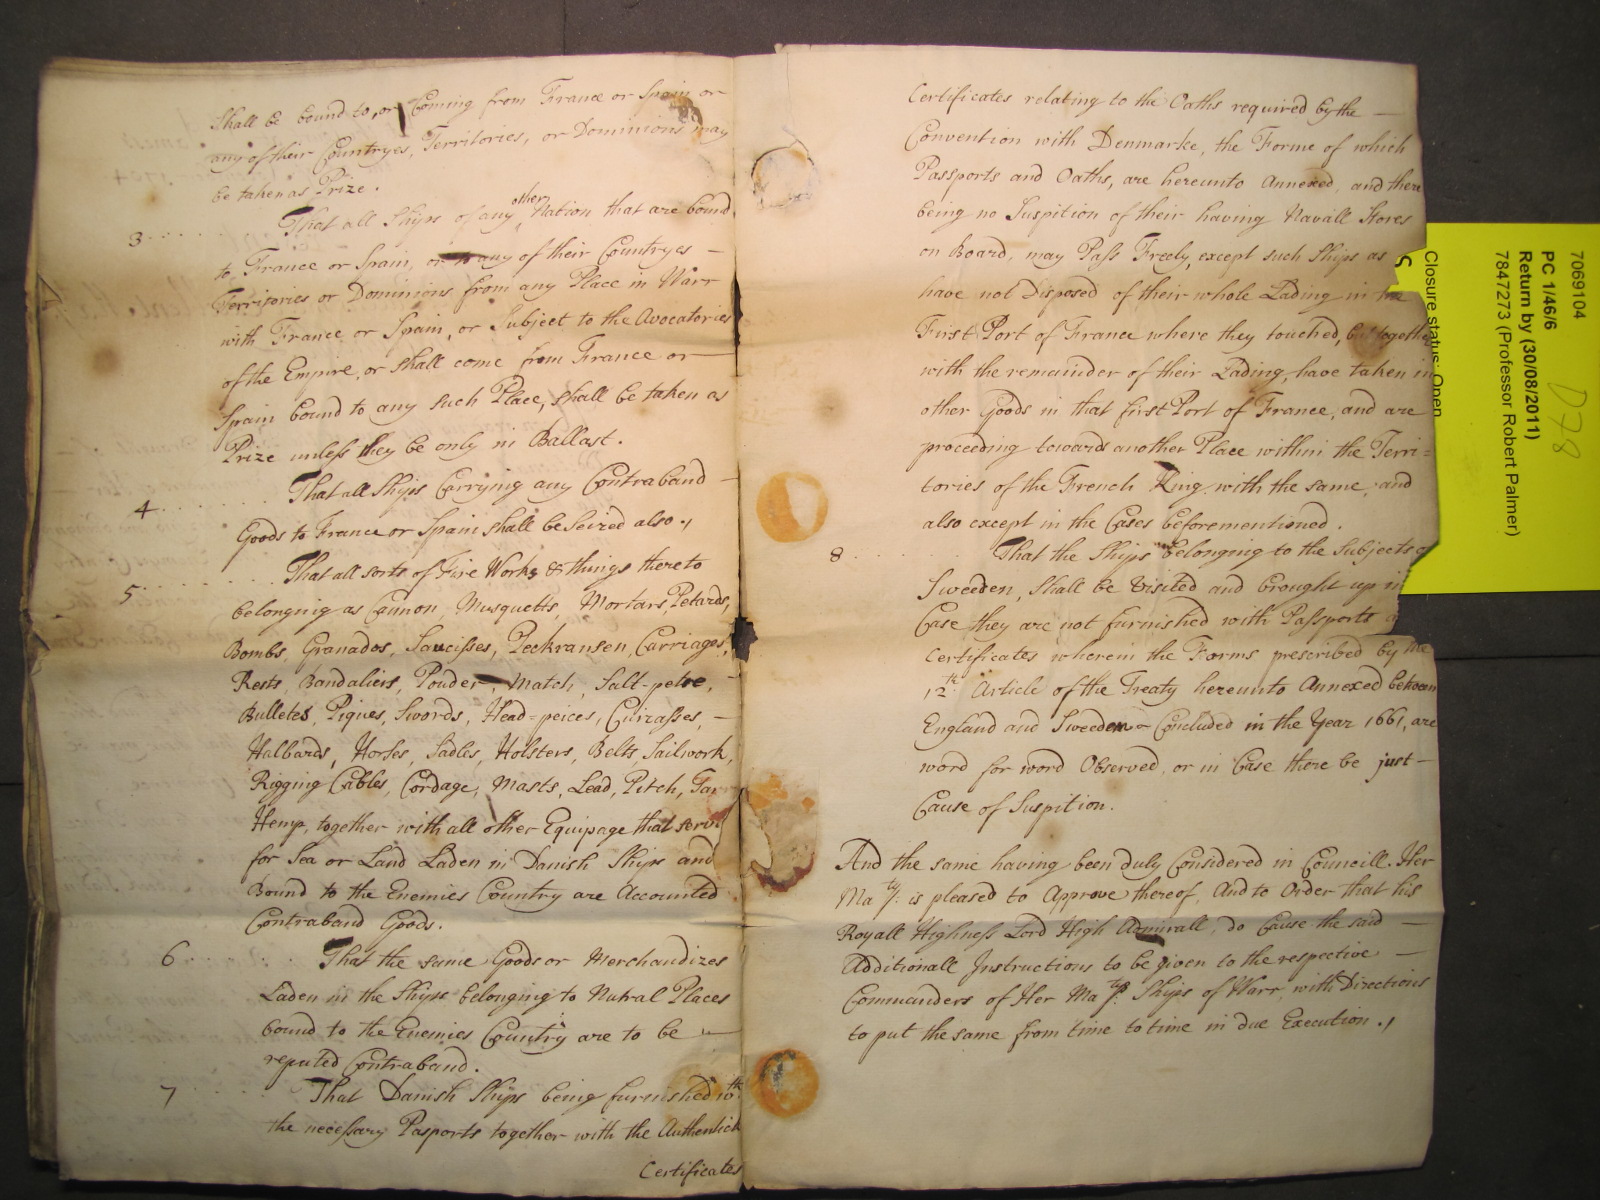 Shall be bound to, or Coming from France or Spain or
any of their Countryes, Territories, or Dominions may
be taken as Prize.
3 That all Ships of any other Nation that are bound
to France or Spain, or to any of their Countryes
Territories or Dominions from any Place in Warr
with France or Spain, or Subject to the Avocatories
of the Empire, or shall come from France or
Spain bound to any such Place, shall be taken as
Prize unless they be only in Ballast.
4 That all Ships Carrying any Contraband
Goods to France or Spain shall be Seized also.,
5 That all sorts of Fire Works & things thereto
belonging as Cannon, Musquetts, Mortars, Petards,
Bombs, Granados, Saucisses, Peckransen, Carriages,
Rests, Bandaliers, Pouder, Match, Salt-petre,
Bulletts, Piques, Swords, Head-peices, Cuirasses,
Halbards, Horses, Sadles, Holsters, Belts, Sailwork,
Rigging Cables, Cordage, Masts, Lead, Pitch, Tar
Hemp, together with all other Equipage that serve
for Sea or Land Laden in Danish Ships and
Bound to the Enemies Country are Accounted
Contraband Goods.
6 That the same Goods or Merchandizes
Laden in the Ships belonging to Nutral Places
bound to the Enemies Country are to be
reputed Contraband.
7 That Danish Ships being furnished wth
the necessary Pasports together with the Authentick
Certificates
Certificates relating to the Oaths required by the
Convention with Denmarke, the Forme of which
Passports and Oaths, are hereunto Annexed, and there
being no Suspition of their having Navall Stores
on Board, may Pass Freely, except such Ships as
have not Disposed of their whole Lading in the
First Port of France where they touched, but together
with the remainder of their Lading, have taken in
other Goods in that first Port of France, and are
proceeding towards another Place within the Terri=
tories of the French King with the same, and
also except in the Cases beforementioned.
8 That the Ships belonging to the Subjects of
Sweeden, shall be Visited and brought up in
Case they are not furnished with Passports a
Certificates wherein the Forms prescribed by the
12th Article of the Treaty hereunto Annexed between
England and Sweeden Concluded in the Year 1661, are
word for word Observed, or in Case there be just
Cause of Suspition.
And the same having been duly Considered in Councill. Her
Maty: is pleased to Approve thereof, And to Order that his
Royall Highness Lord High Admirall, do Cause the said
Additionall Instructions to be given to the respective
Commanders of Her Matys: Ships of Warr, with Directions
to put the same from time to time in due Execution.,
7069104
PC 1/46/6
Return by (30/08/2011)
7847273 (Professor Robert Palmer)
Closure status: Open
S
D78